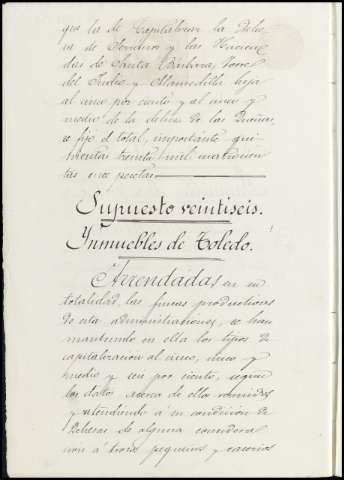 que la de Capitalizar la Dehe-
sa de Servidores y las Hacien-
das de Santa Bárbara, Torre
del Indio y Alamedilla baja
al cinco por ciento y al cinco y
medio de la dehesa de las Dueñas,
se fijó el total, importante qui-
nientas treinta mil cuatrocien-
tas once pesetas.
Supuesto veintiseis.
Inmuebles de Toledo.
Arrendadas en su
totalidad las fincas productivas
de esta administración, se han
mantenido en ella los tipos de
capitalización al cinco, cinco y
medio y seis por ciento, segun
los datos acerca de ella reunidos
y atendiendo a su condición de
Dehesas de alguna considera-
ción á trozos pequeños y caserios